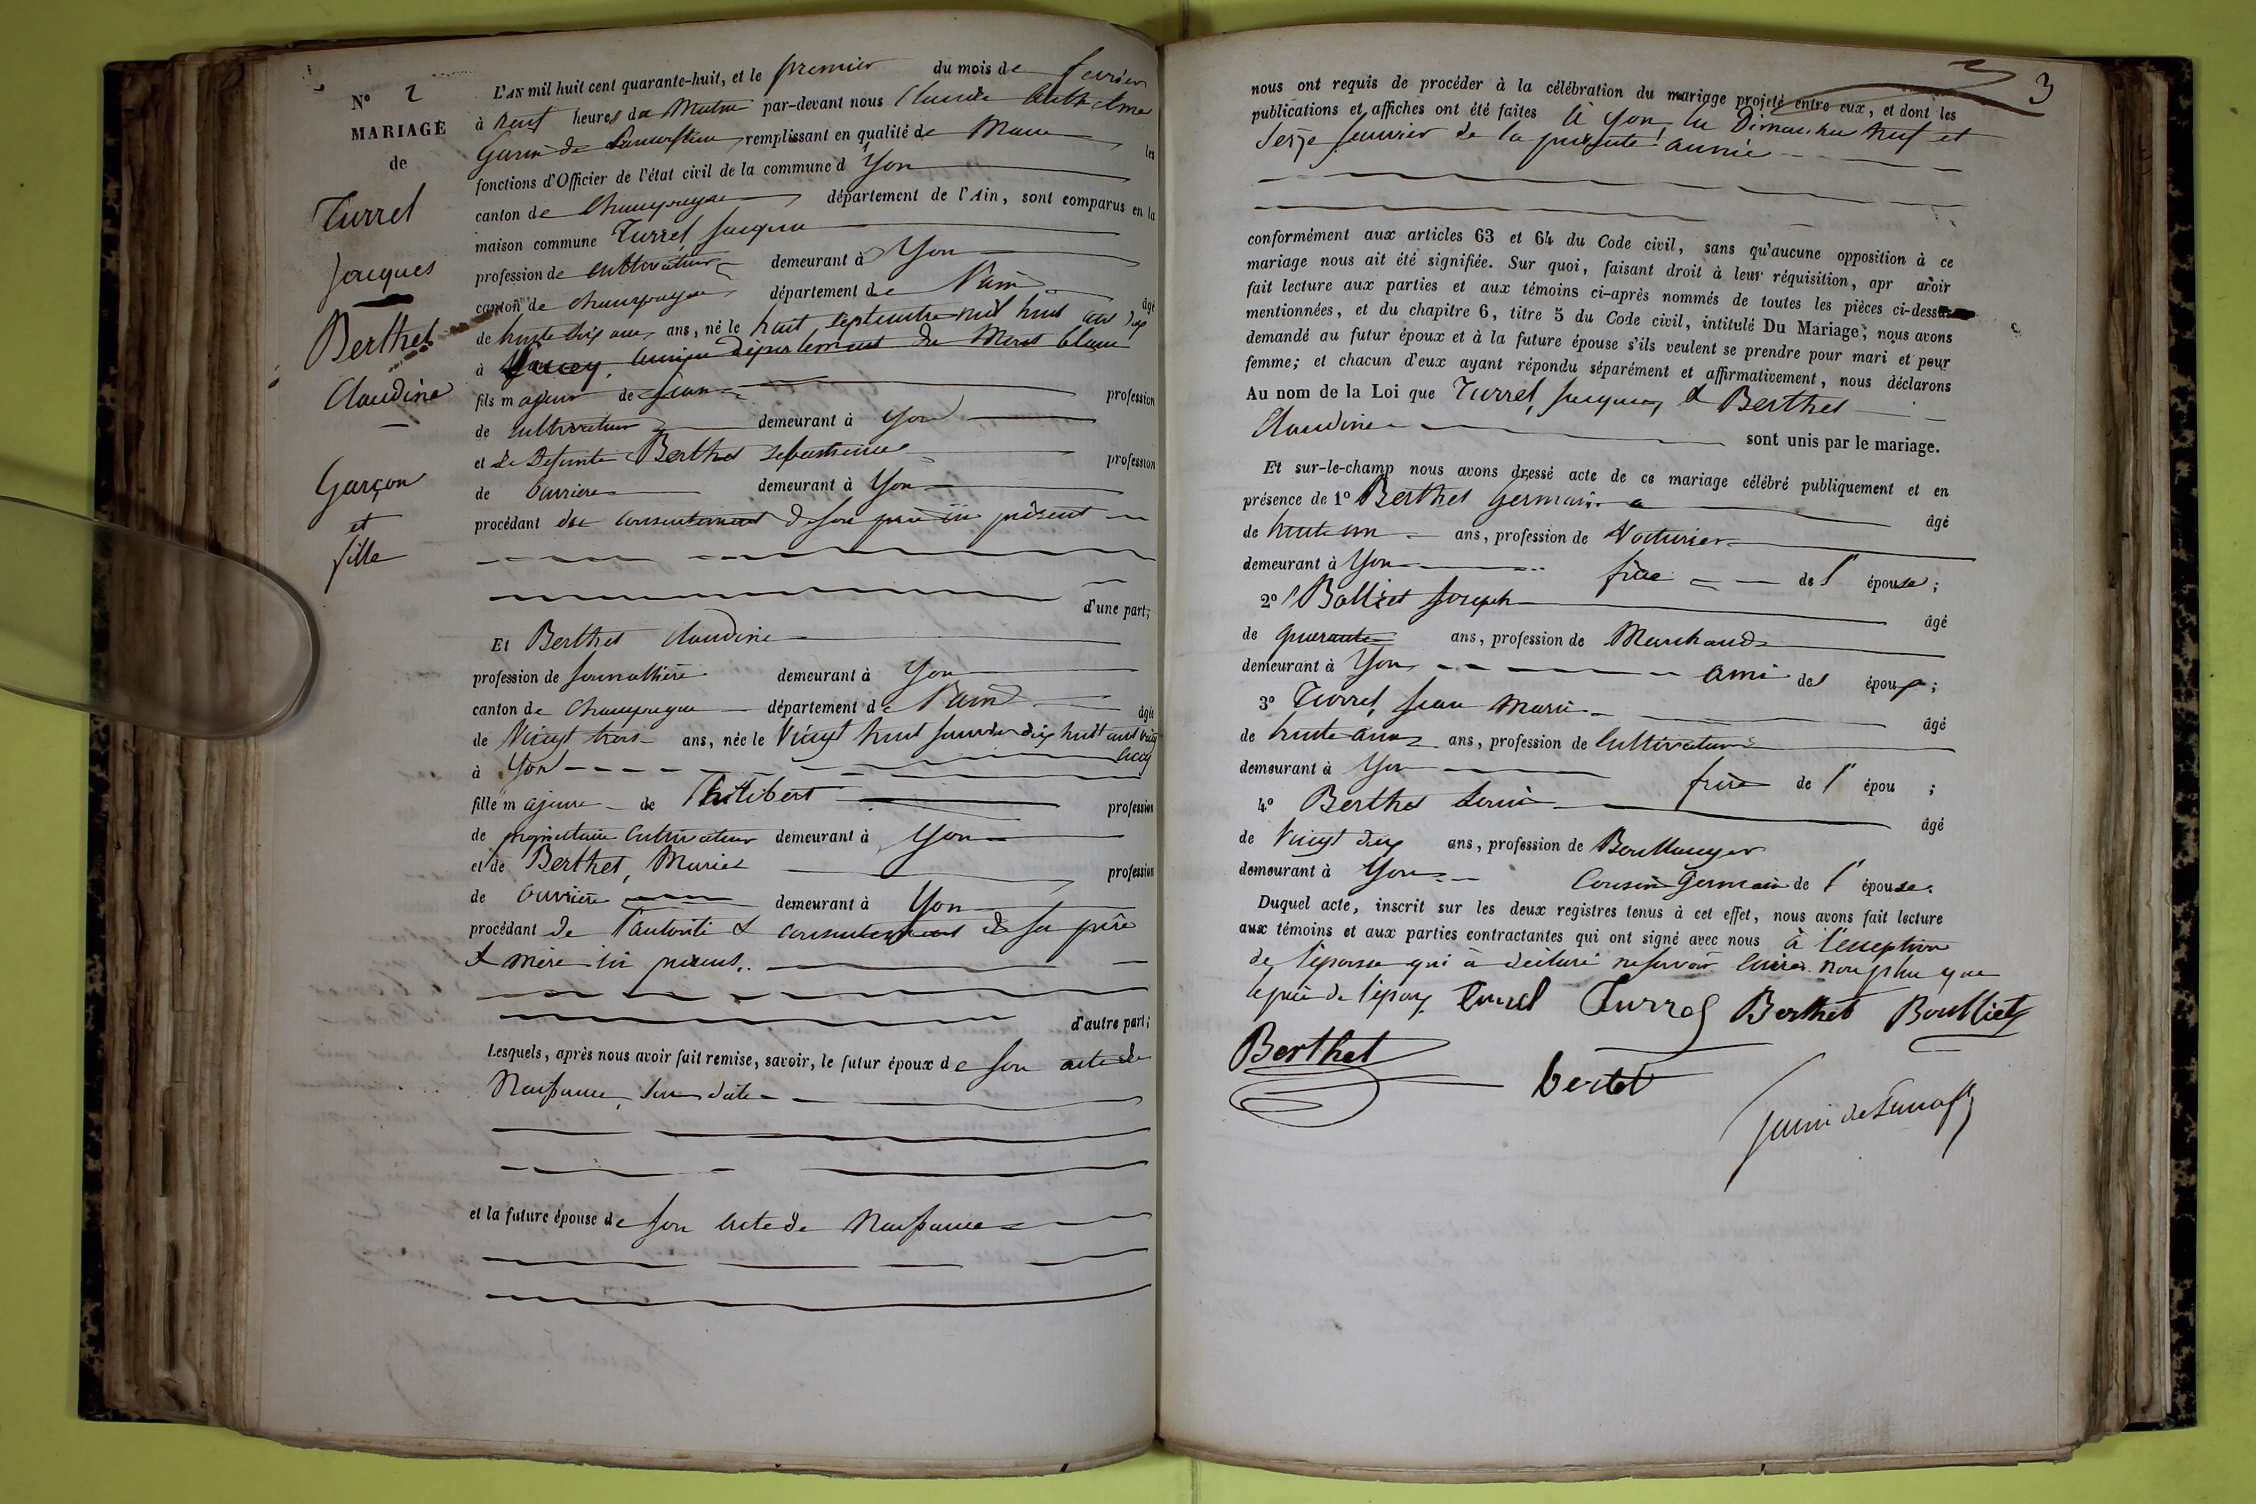 N° 2
MARIAGE
de
Turrel
Jacques
Berthet
Claudine
Garçon
et
fille
L'AN mil huit cent quarante-huit, et le premier du mois de fevrier
à neuf heures du Matin par-devant nous Claude Anthelme
Garin de Lamorflan remplissant en qualité de Maire les
fonctions d'Officier de l'état civil de la commune d Yon
canton de Champagne département de l'Ain, sont comparus en la
maison commune Turrel Jacques
profession de cultivateur demeurant à Yon
canton de champagne département de l'ain âgé
de trente dix ans, ans, né le huit septembre mil huit cent dix
à département du Mont blanc
fils majeur de Jean profession
de cultivateur demeurant à Yon
et de defunte Berthet profession
de ouvriere demeurant à Yon
procédant du consentement de son père ici présent
d'une part;
Et Berthet Claudine
profession de Journalliere demeurant à Yon
canton de Champagne département de l'ain âgée
de Vingt trois ans, née le Vingt huit Janvier dix huit cent vingt
à Yon cinq
fille majeure de Philibert profession
de propriétaire Cultivateur demeurant à Yon
et de Berthet, Mariet profession
de Ouvriere demeurant à Yon
procédant de l'autorité & consentement de ses père
& mère ici présens.
d'autre part;
Lesquels, après nous avoir fait remise, savoir, le futur époux de son acte de
Naissance, sans date
et la future épouse de son acte de Naissance
3
nous ont requis de procéder à la célébration du mariage projeté entre eux, et dont les
publications et affiches ont été faites à Yon les Dimanches Neuf et
Seize Janvier de la présente année
conformément aux articles 63 et 64 du Code civil, sans qu'aucune opposition à ce
mariage nous ait été signifiée. Sur quoi, faisant droit à leur réquisition, apr avoir
fait lecture aux parties et aux témoins ci-après nommés de toutes les pièces ci-dessus
mentionnées, et du chapitre 6, titre 5 du Code civil, intitulé Du Mariage, nous avons
demandé au futur époux et à la future épouse s'ils veulent se prendre pour mari et pour
femme; et chacun d'eux ayant répondu séparément et affirmativement, nous déclarons
Au nom de la Loi que Turrel, Jacques, & Berthet
Claudine sont unis par le mariage.
Et sur-le-champ nous avons dressé acte de ce mariage célébré publiquement et en
présence de 1° Berthet Germain âgé
de trente un ans, profession de Voiturier
demeurant à Yon frère de l' épouse;
2° Bolliet Joseph âgé
de quarante ans, profession de Marchand
demeurant à Yon ami des époux;
3° Turrel, Jean Marie âgé
de trente ans, profession de Cultivateur
demeurant à Yon frère de l' épou ;
4° Berthet Louis âgé
de Vingt dix ans, profession de Boullanger
demeurant à Yon Cousin Germain de l' épouse.
Duquel acte, inscrit sur les deux registres tenus à cet effet, nous avons fait lecture
aux témoins et aux parties contractantes qui ont signé avec nous à l'exception
de l'épouse qui a déclaré ne savoir écrire non plus que
le père de l'époux. Turrel Turrel Berthet Boulliet
Berthet bertet